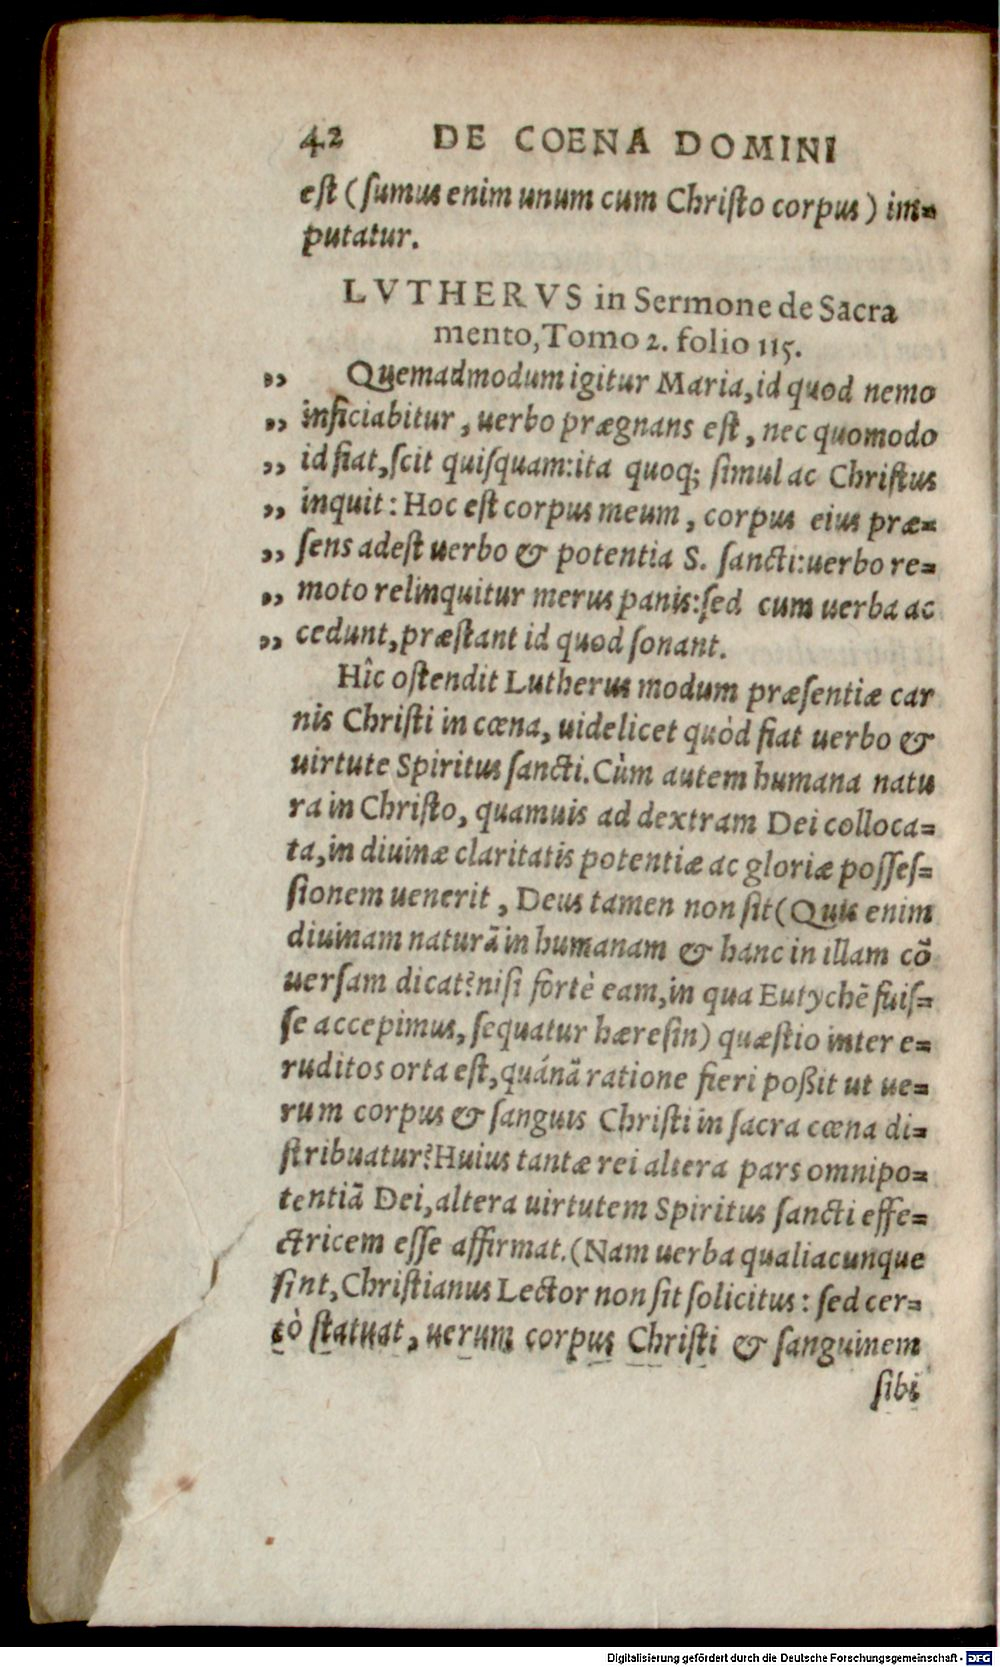 42 DE COENA DOMINI
est (sumus enim unum cum Christo corpus) im-
putatur.
LVTHERVS in Sermone de Sacra
mento, Tomo 2. folio 115.
„ Quemadmodum igitur Maria, id quod nemo
„ inficiabitur, uerbo prægnans est, nec quomodo
„ id fiat, scit quisquam: ita quoq; simul ac Christus
„ inquit: Hoc est corpus meum, corpus eius præ-
„ sens adest uerbo & potentia S. sancti: uerbo re-
„ moto relinquitur merus panis: sed cum uerba ac
„ cedunt, præstant id quod sonant.
Hîc ostendit Lutherus modum præsentiæ car
nis Christi in cœna, uidelicet quòd fiat uerbo &
uirtute Spiritus sancti. Cùm autem humana natu
ra in Christo, quamuis ad dextram Dei colloca-
ta, in diuinæ claritatis potentiæ ac gloriæ posses-
sionem uenerit, Deus tamen non sit (Quis enim
diuinam naturã in humanam & hanc in illam cõ
uersam dicat? nisi fortè eam, in qua Eutychẽ fuis-
se accepimus, sequatur hæresin) quæstio inter e-
ruditos orta est, quánã ratione fieri poßit ut ue-
rum corpus & sanguis Christi in sacra cœna di-
stribuatur? Huius tantæ rei altera pars omnipo-
tentiã Dei, altera uirtutem Spiritus sancti effe-
ctricem esse affirmat. (Nam uerba qualiacunque
sint, Christianus Lector non sit solicitus: sed cer-
tò statuat, uerum corpus Christi & sanguinem
sibi
Digitalisierung gefördert durch die Deutsche Forschungsgemeinschaft - DFG